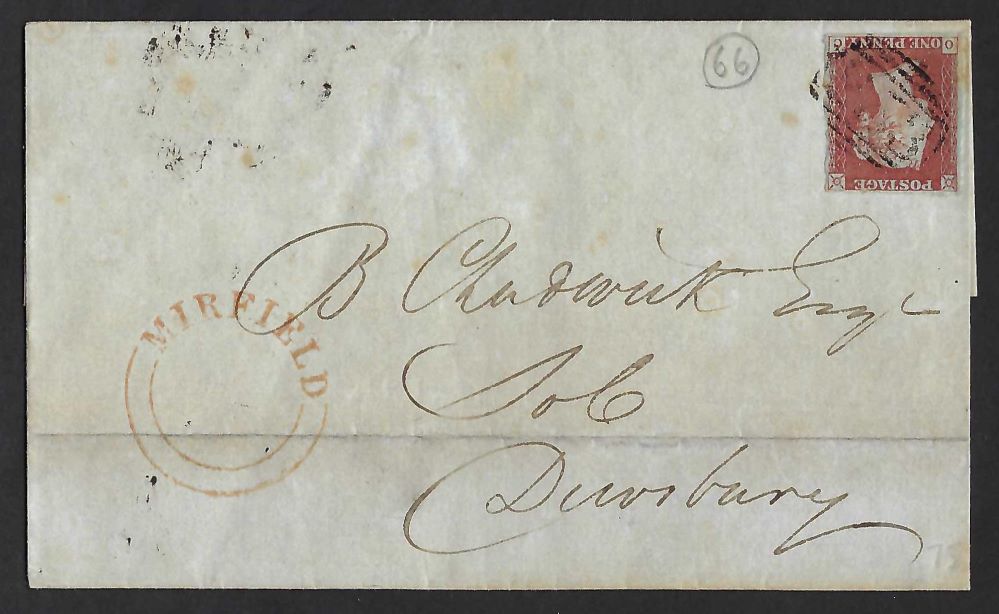 66
POSTAGE
ONE PENNY
B Chadwick Esqr
Sol
Dewsbury
MIRFIELD